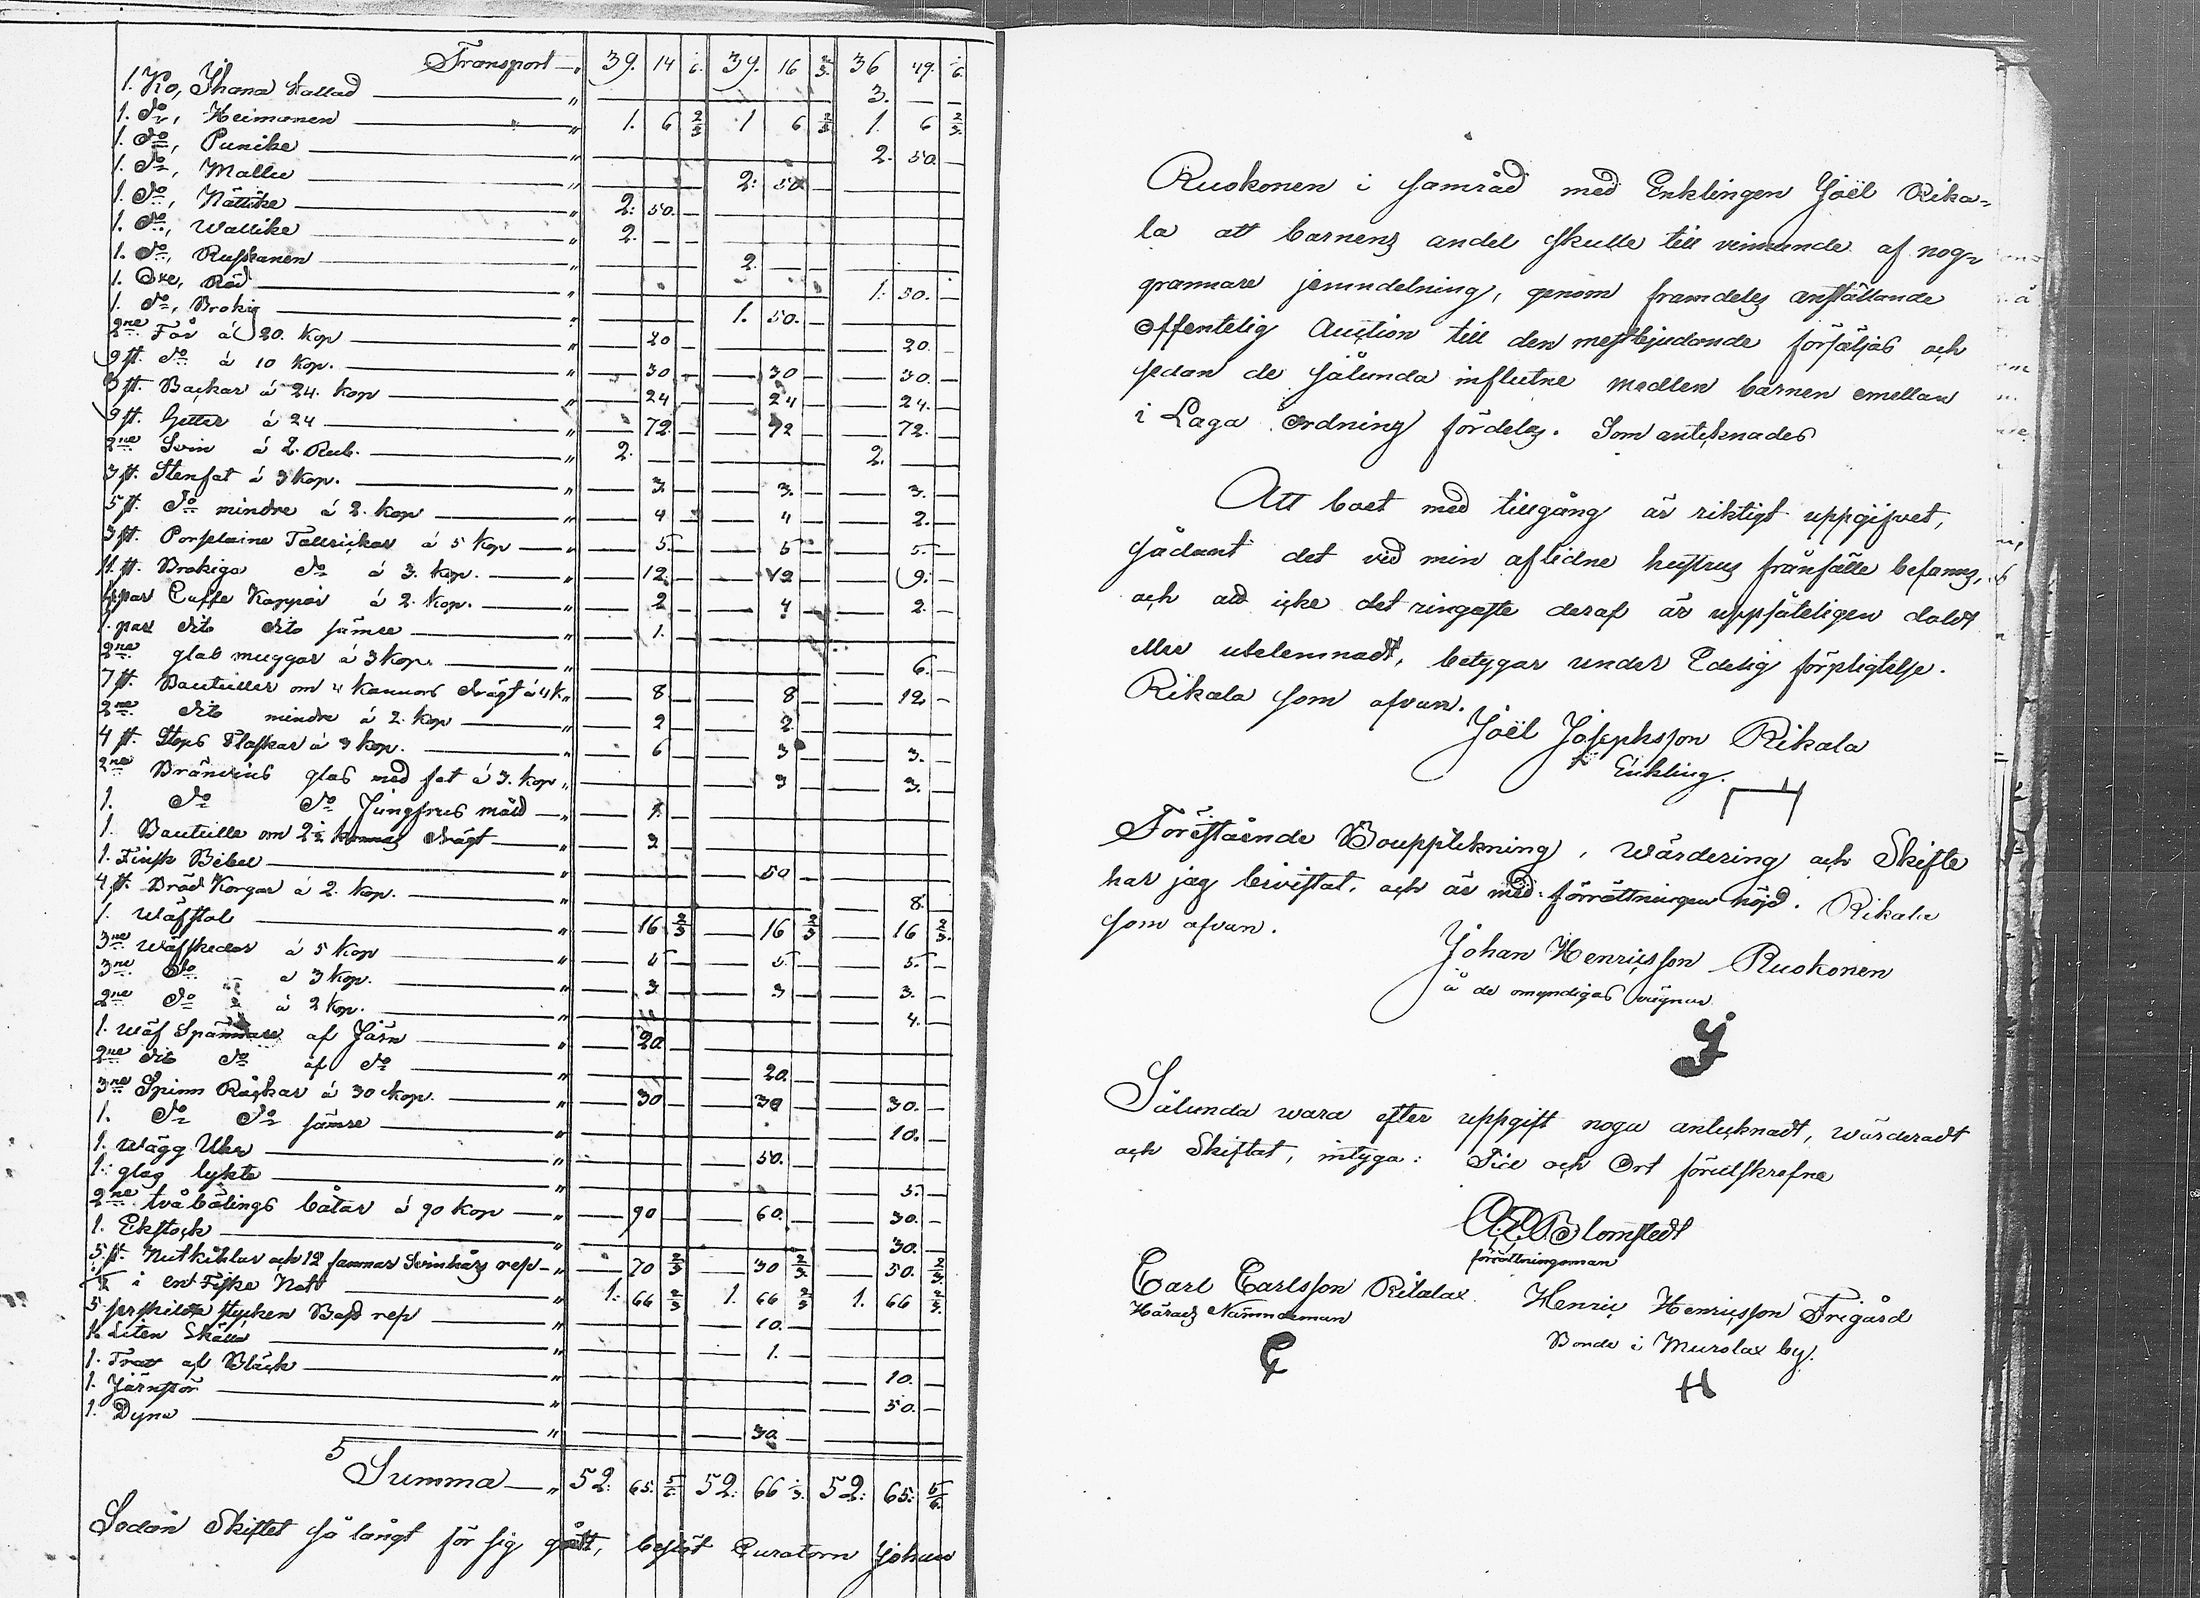 Transport „ 39. 14 1/6. 39. 16 2/3. 36 49. 1/6
1. Ko, Ihana kallad „ 3. — —
1. Do, Heimonen „ 1. 6 2/3 1 6 2/3 1. 6 2/3.
1. Do, Punike „ 2. 50. —
1. Do, Mallu „ 2: 50 —
1. Do, Nättike „ 2: 50. —
1. Do, Wallike „ 2. — —
1. Do, Ruskanen „ 2. — —
1. Oxe, Röd „ 1. 50. —
1. Do, Brokig „ 1. 50. —
2ne Får á 20. Kop „ 20 — 20. —
9 st. Do á 10 Kop. „ 30 — 30 — 30. —
3 st. Backar á 24. Kop „ 24 — 24 — 24. —
9 st. Getter á 24 „ 72 — 72 — 72. —
2ne Svin á 2. Rub. „ 2. — — 2. — —
3 st. Stenfat á 3 Kop. „ 3. — 3. — 3. —
5 st. Do mindre á 2. Kop „ 4 — 4 — 2. —
3 st. Porselaine Tallrickar á 5 Kop „ 5. — 5 — 5. —
11. st. Brokiga Do á 3. Kop. „ 12. — 12 — 9. —
4 par Caffe Koppor á 2. Kop. „ 2 — 4 — 2. —
1. par dito dito sämre „ 1. —
2ne glas muggar á 3 Kop. „ 6. —
7 st. Bouteiller om 4 Kannors drägt á 4 K. „ 8 — 8 — 12. —
2ne dito mindre á 2. Kop „ 2 — 2. —
4 st. Stops Flaskar á 3 Kop. „ 6 — 3 — 3. —
2ne Bränvins glas med fat á 3. Kop „ 3 — 3. —
1. Do Do Jungfrus måld „ 1. —
1. Bouteille om 2 1/2 Kannas drägt „ 3 —
1. Finsk Bibel „ 50 —
4 st. Bröd Korgar á 2. Kop. „ 8. —
1. Wäfstol „ 16 2/3 16 2/3 16 2/3.
3ne Wäfskedar á 5 Kop „ 5 — 5. — 5. —
3ne Do á 3 Kop. „ 3 — 3 — 3. —
2ne Do á 2 Kop. „ 4. —
1. Wäf Spännare af Järn „ 20 —
2ne dito Do af Do „ 20. —
3ne Spinn Råckar á 30 Kop. „ 30 — 30 — 30. —
1. Do Do sämre „ 10. —
1. Wägg Uhr „ 50. —
1. glas lykta „ 5. —
2ne två bålings båtar á 90 Kop „ 90 — 60. — 30. —
1. Ekstock „ 30. —
5. st. Nutkiblar och 12 famnar Svinhårs rep „ 70 2/3 30 2/3. 50. 2/3.
1/2 i en Fiske Nott „ 1. 66 2/3 1. 66 2/3 1. 66 2/3.
5 serskilda stycken Bast rep „ 10. —
1. Liten Skälla „ 1. —
1. Tratt af Bläck „ 10. —
1. Järnstör „ 50. —
1. Dyna „ 30 —
Summa „ 52: 65: 5/6. 52: 66 1/3. 52: 65: 5/6.
Sedan Skiftet så långt för sig gått, beslöt Curatorn Johan
Ruskonen i samråd med Enklingen Joël Rika=
la att barnens andel skulle till vinnande af nog=
grannare jemndelning, genom framdeles anställande
Offentelig Auction till den mestbjudande försäljas och
sedan de sålunda influtne medlen barnen emellan
i Laga Ordning fördelas. Som antecknades
Att boet med tillgång är riktigt uppgifvet,
sådant det ved min aflidne hustrus frånfälle befanns,
och att icke det ringaste deraf är uppsåteligen doldt
eller utelemnadt, betygar under Edelig förpligtelse.
Rikala som ofvan.
Joël Josephsson Rikala
Enkling.
Förestående Bouppteckning, Wärdering och Skifte
har jag bivistat, och är med förrättningen nöjd. Rikala
som ofvan.
Johan Henricsson Ruskonen
å de omyndigas vägnar
Sålunda wara efter uppgift noga antecknadt, wärderadt
och Skiftat, intyga: Tid och Ort förutskrefne
Blomstedt
förrättningsman
Carl Carlsson Rilalax Henric Henricsson Frigård
Härads Nämndeman Bonde i Murolax by.
H